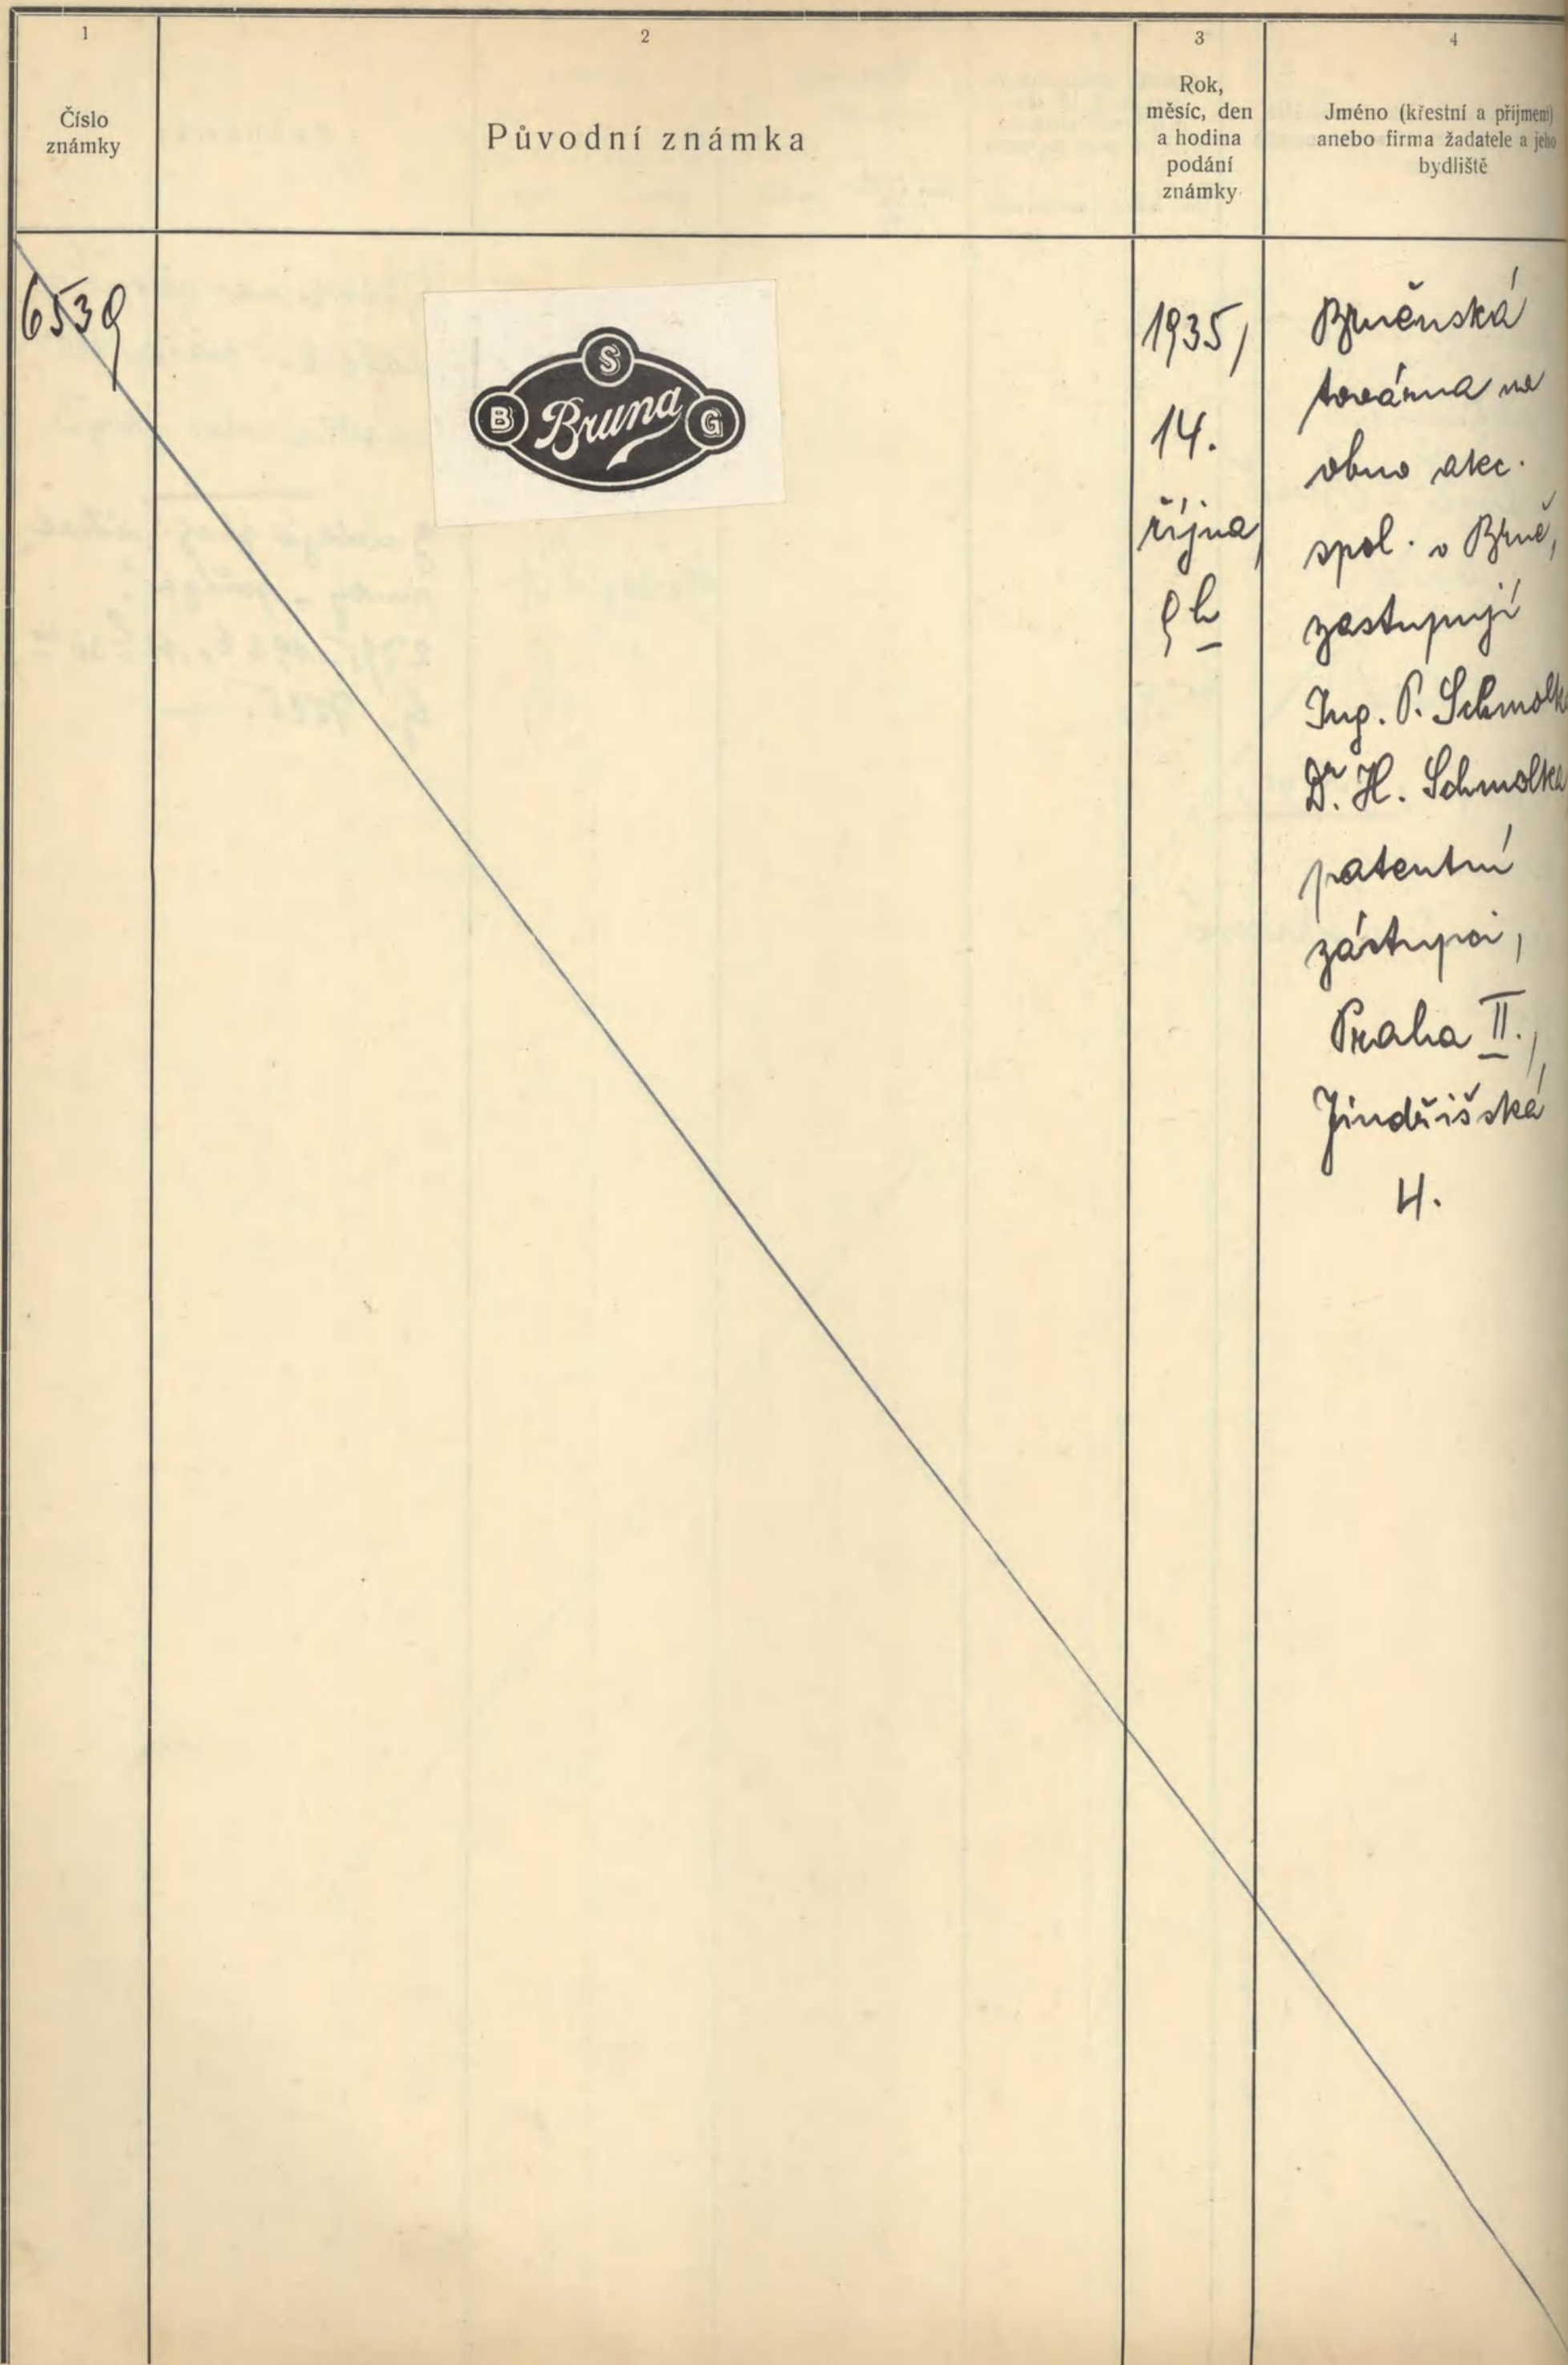 1
Číslo
známky
2
Původní známka
3
Rok,
měsíc, den
a hodina
podání
známky
4
Jméno (křestní a příjmení)
anebo firma žadatele a jeho
bydliště
6539
S
B Bruna G
1935,
14.
října,
9 h
Brněnská
továrna na
obuv akc.
spol. v Brně,
zastupují
Ing. P. Schmolka
Dr. H. Schmolka
patentní
zástupci,
Praha II.,
Jindřišská
4.